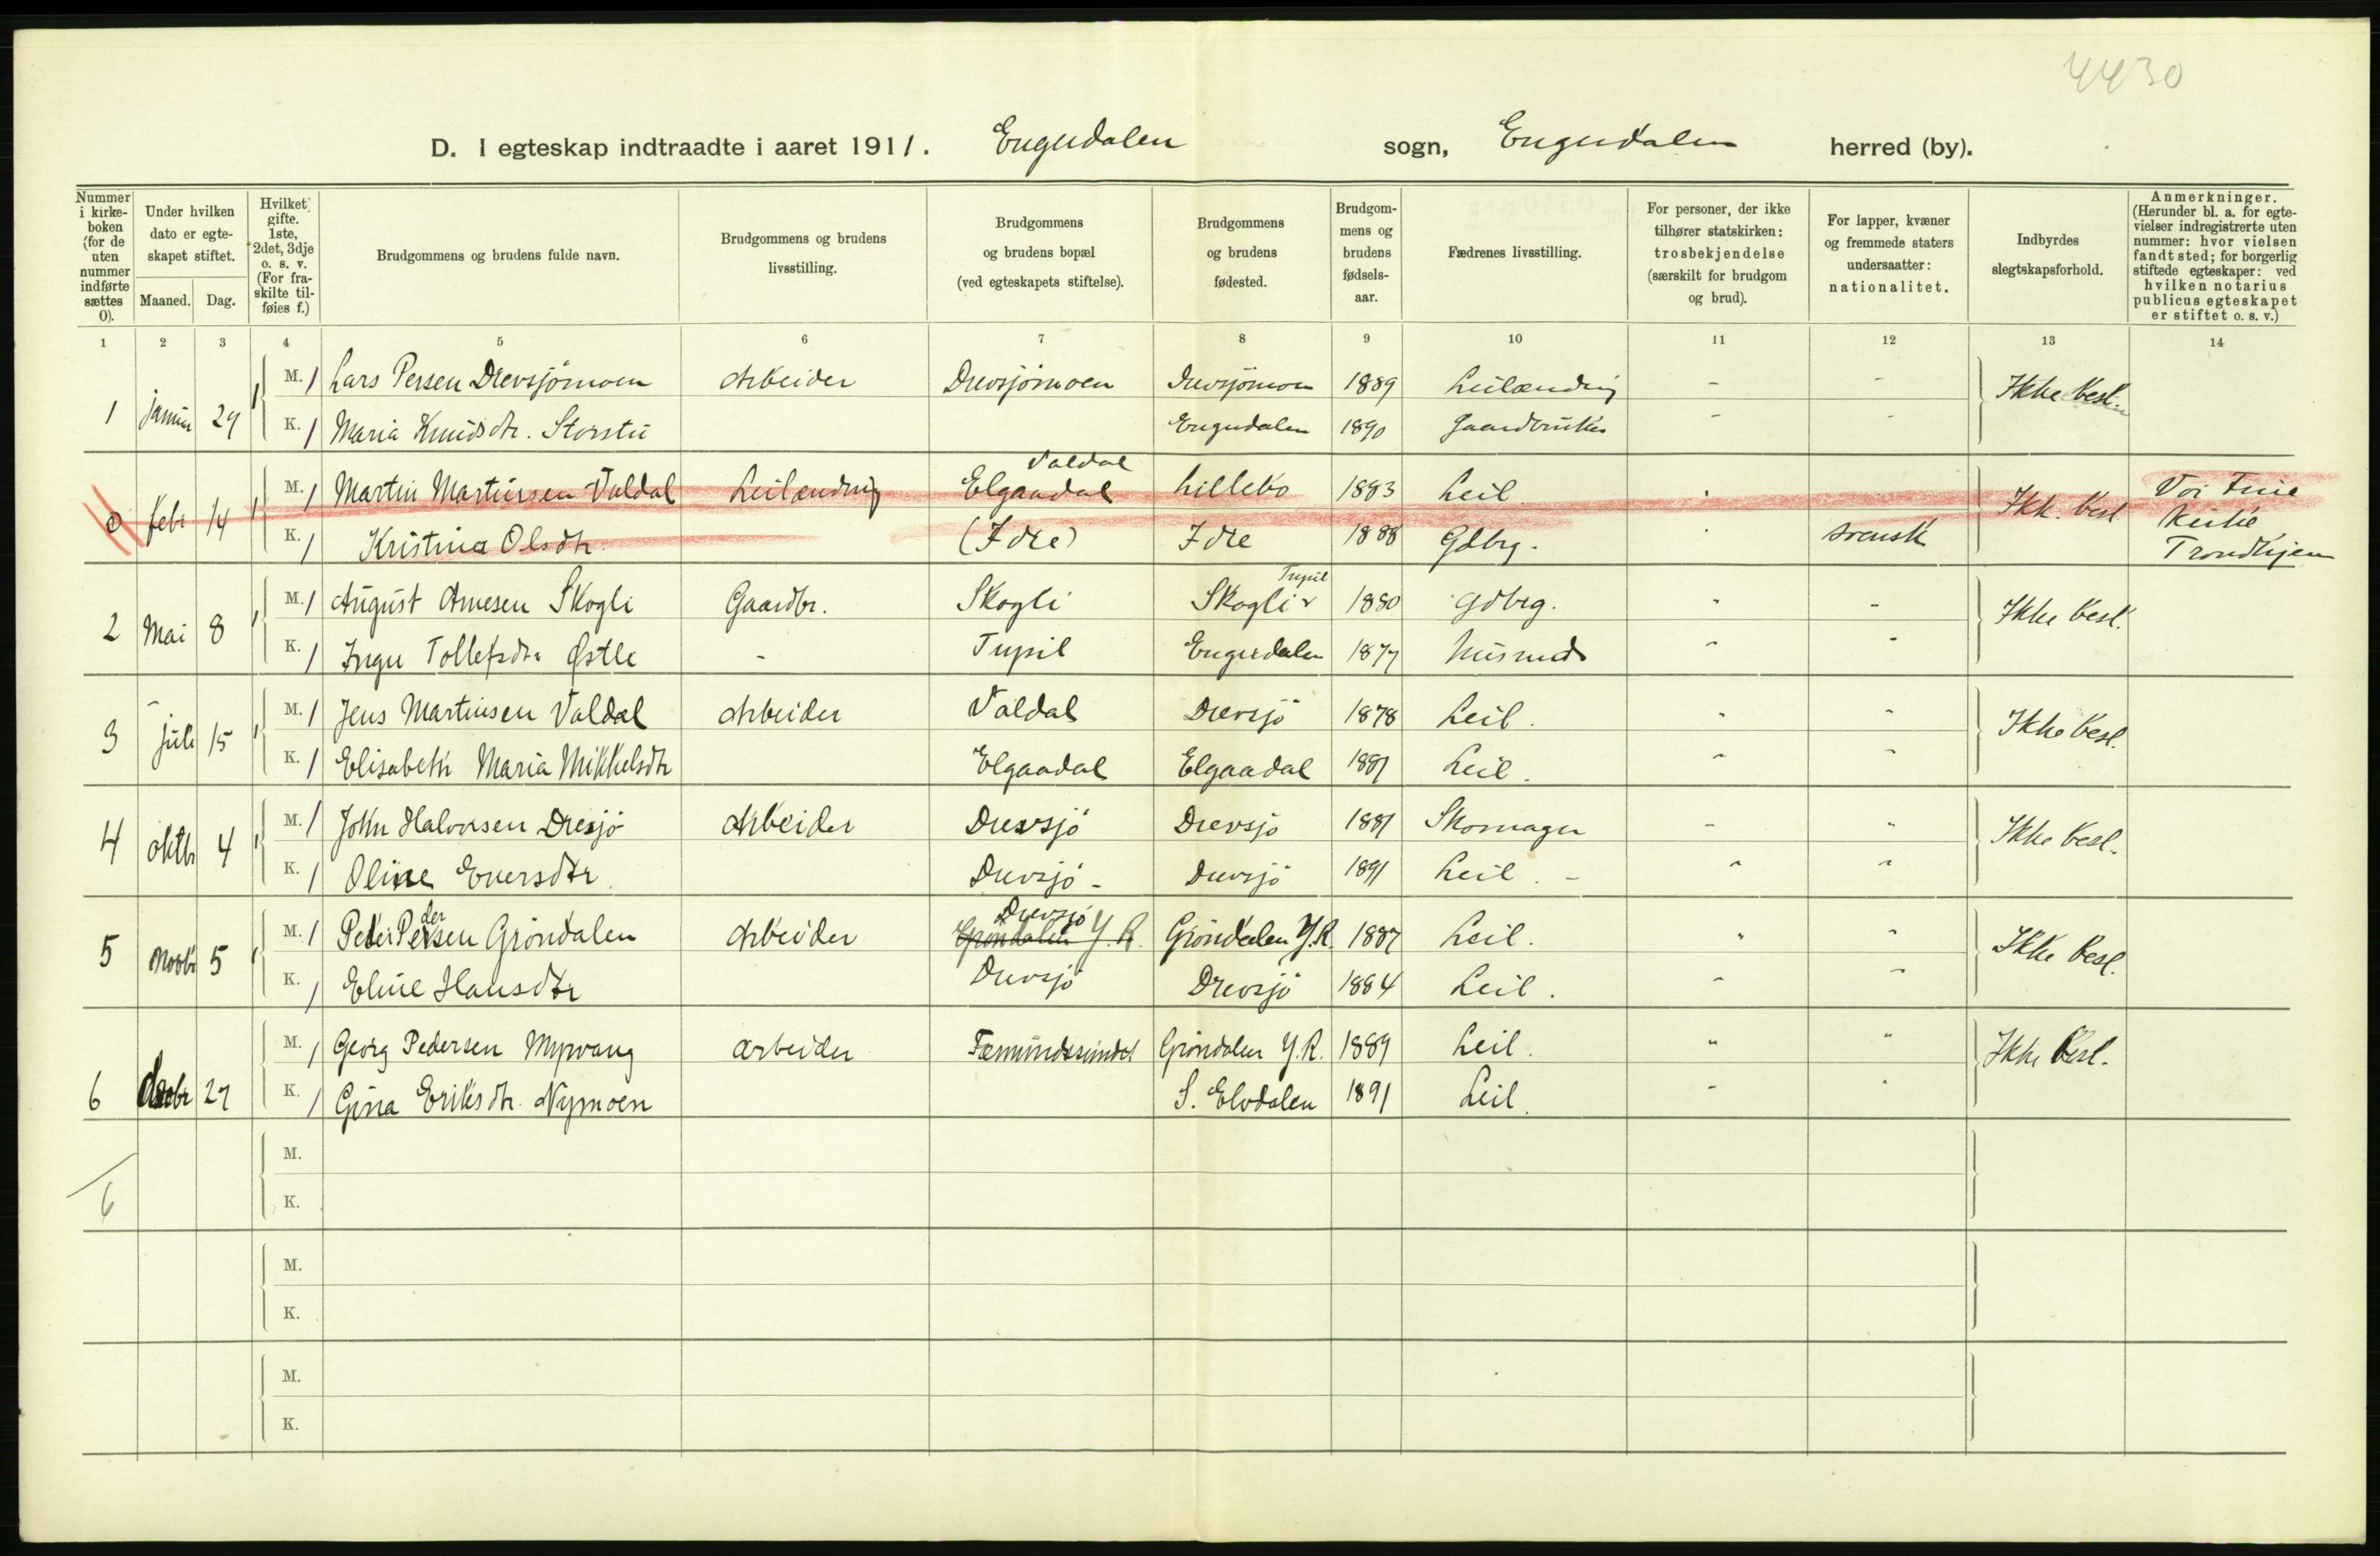 4430
D. I egteskap indtraadte i aaret 1911. Engerdalen sogn, Engerdalen herred (by).
Nummer i kirke-boken (for de uten nummer indførte sættes 0).
Under hvilken dato er egte-skapet stiftet.
Maaned. Dag.
Hvilket gifte. 1ste, 2det, 3dje o. s. v. (For fra-skilte til-føies f.)
Brudgommens og brudens fulde navn.
Brudgommens og brudens livsstilling.
Brudgommens og brudens bopæl (ved egteskapets stiftelse).
Brudgommens og brudens fødested.
Brudgom-mens og brudens fødsels-aar.
Fædrenes livsstilling.
For personer, der ikke tilhører statskirken: trosbekjendelse (særskilt for brudgom og brud).
For lapper, kvæner og fremmede staters undersaatter: nationalitet.
Indbyrdes slegtskapsforhold.
Anmerkninger. (Herunder bl. a. for egte-vielser indregistrerte uten nummer: hvor vielsen fandt sted; for borgerlig stiftede egteskaper: ved hvilken notarius publicus egteskapet er stiftet o. s. v.)
1 2 3 4 5 6 7 8 9 10 11 12 13 14
M. 1 Lars Persen Drevsjömoen Arbeider Drevsjömoen Drevsjömoen 1889 Leilænding - -
1 januar 29 1 Ikke besl.
K. 1 Maria Knudsdtr. Storstu Engerdalen 1890 Gaardbruker - -
Valdal
M. 1 Martin Martinsen Valdal Leilænding Elgaadal Lillebo 1883 Leil
0 febr 14 1 Ikk. besl Vor Frue Kirke Trondhjem
K. 1 Kristina Olsdtr. (Idre) Idre 1888 Gdbrg. svensk
Trysil
M. 1 August Arnesen Skogli Gaardbr. Skogli Skogli 1880 Gdbrg. - -
2 Mai 8 1 Ikke besl.
K. 1 Inger Tollefsdtr Østle - Trysil Engerdalen 1877 Husmd - -
M. 1 Jens Martinsen Valdal Arbeider Valdal Drevsjö 1878 Leil. - -
3 juli 15 1 Ikke besl.
K. 1 Elisabeth Maria Mikkelsdtr Elgaadal Elgaadal 1891 Leil. - -
M. 1 John Halvorsen Dresjö Arbeider Drevsjö Drevsjö 1881 Skomager - -
4 oktbr 4 1 Ikke besl.
K. 1 Oline Eversdtr. Drevsjö - Drevsjö 1891 Leil. - - -
der Drevsjö
M. 1 Peder Persen Gröndalen Arbeider Gröndalen Y. R. Gröndalen Y. R. 1887 Leil. - -
5 Novbr 5 1 Ikke besl.
K. 1 Eline Hansdtr Drevsjö Drevsjö 1884 Leil. - -
M. 1 Georg Pedersen Myrvang arbeider Fæmundssundet Gröndalen Y. R. 1889 Leil. " "
6 Decbr 27 Ikke besl.
K. 1 Gina Eriksdtr. Nymoen S. Elvdalen 1891 Leil. - -
M.
6
K.
M.
K.
M.
K.